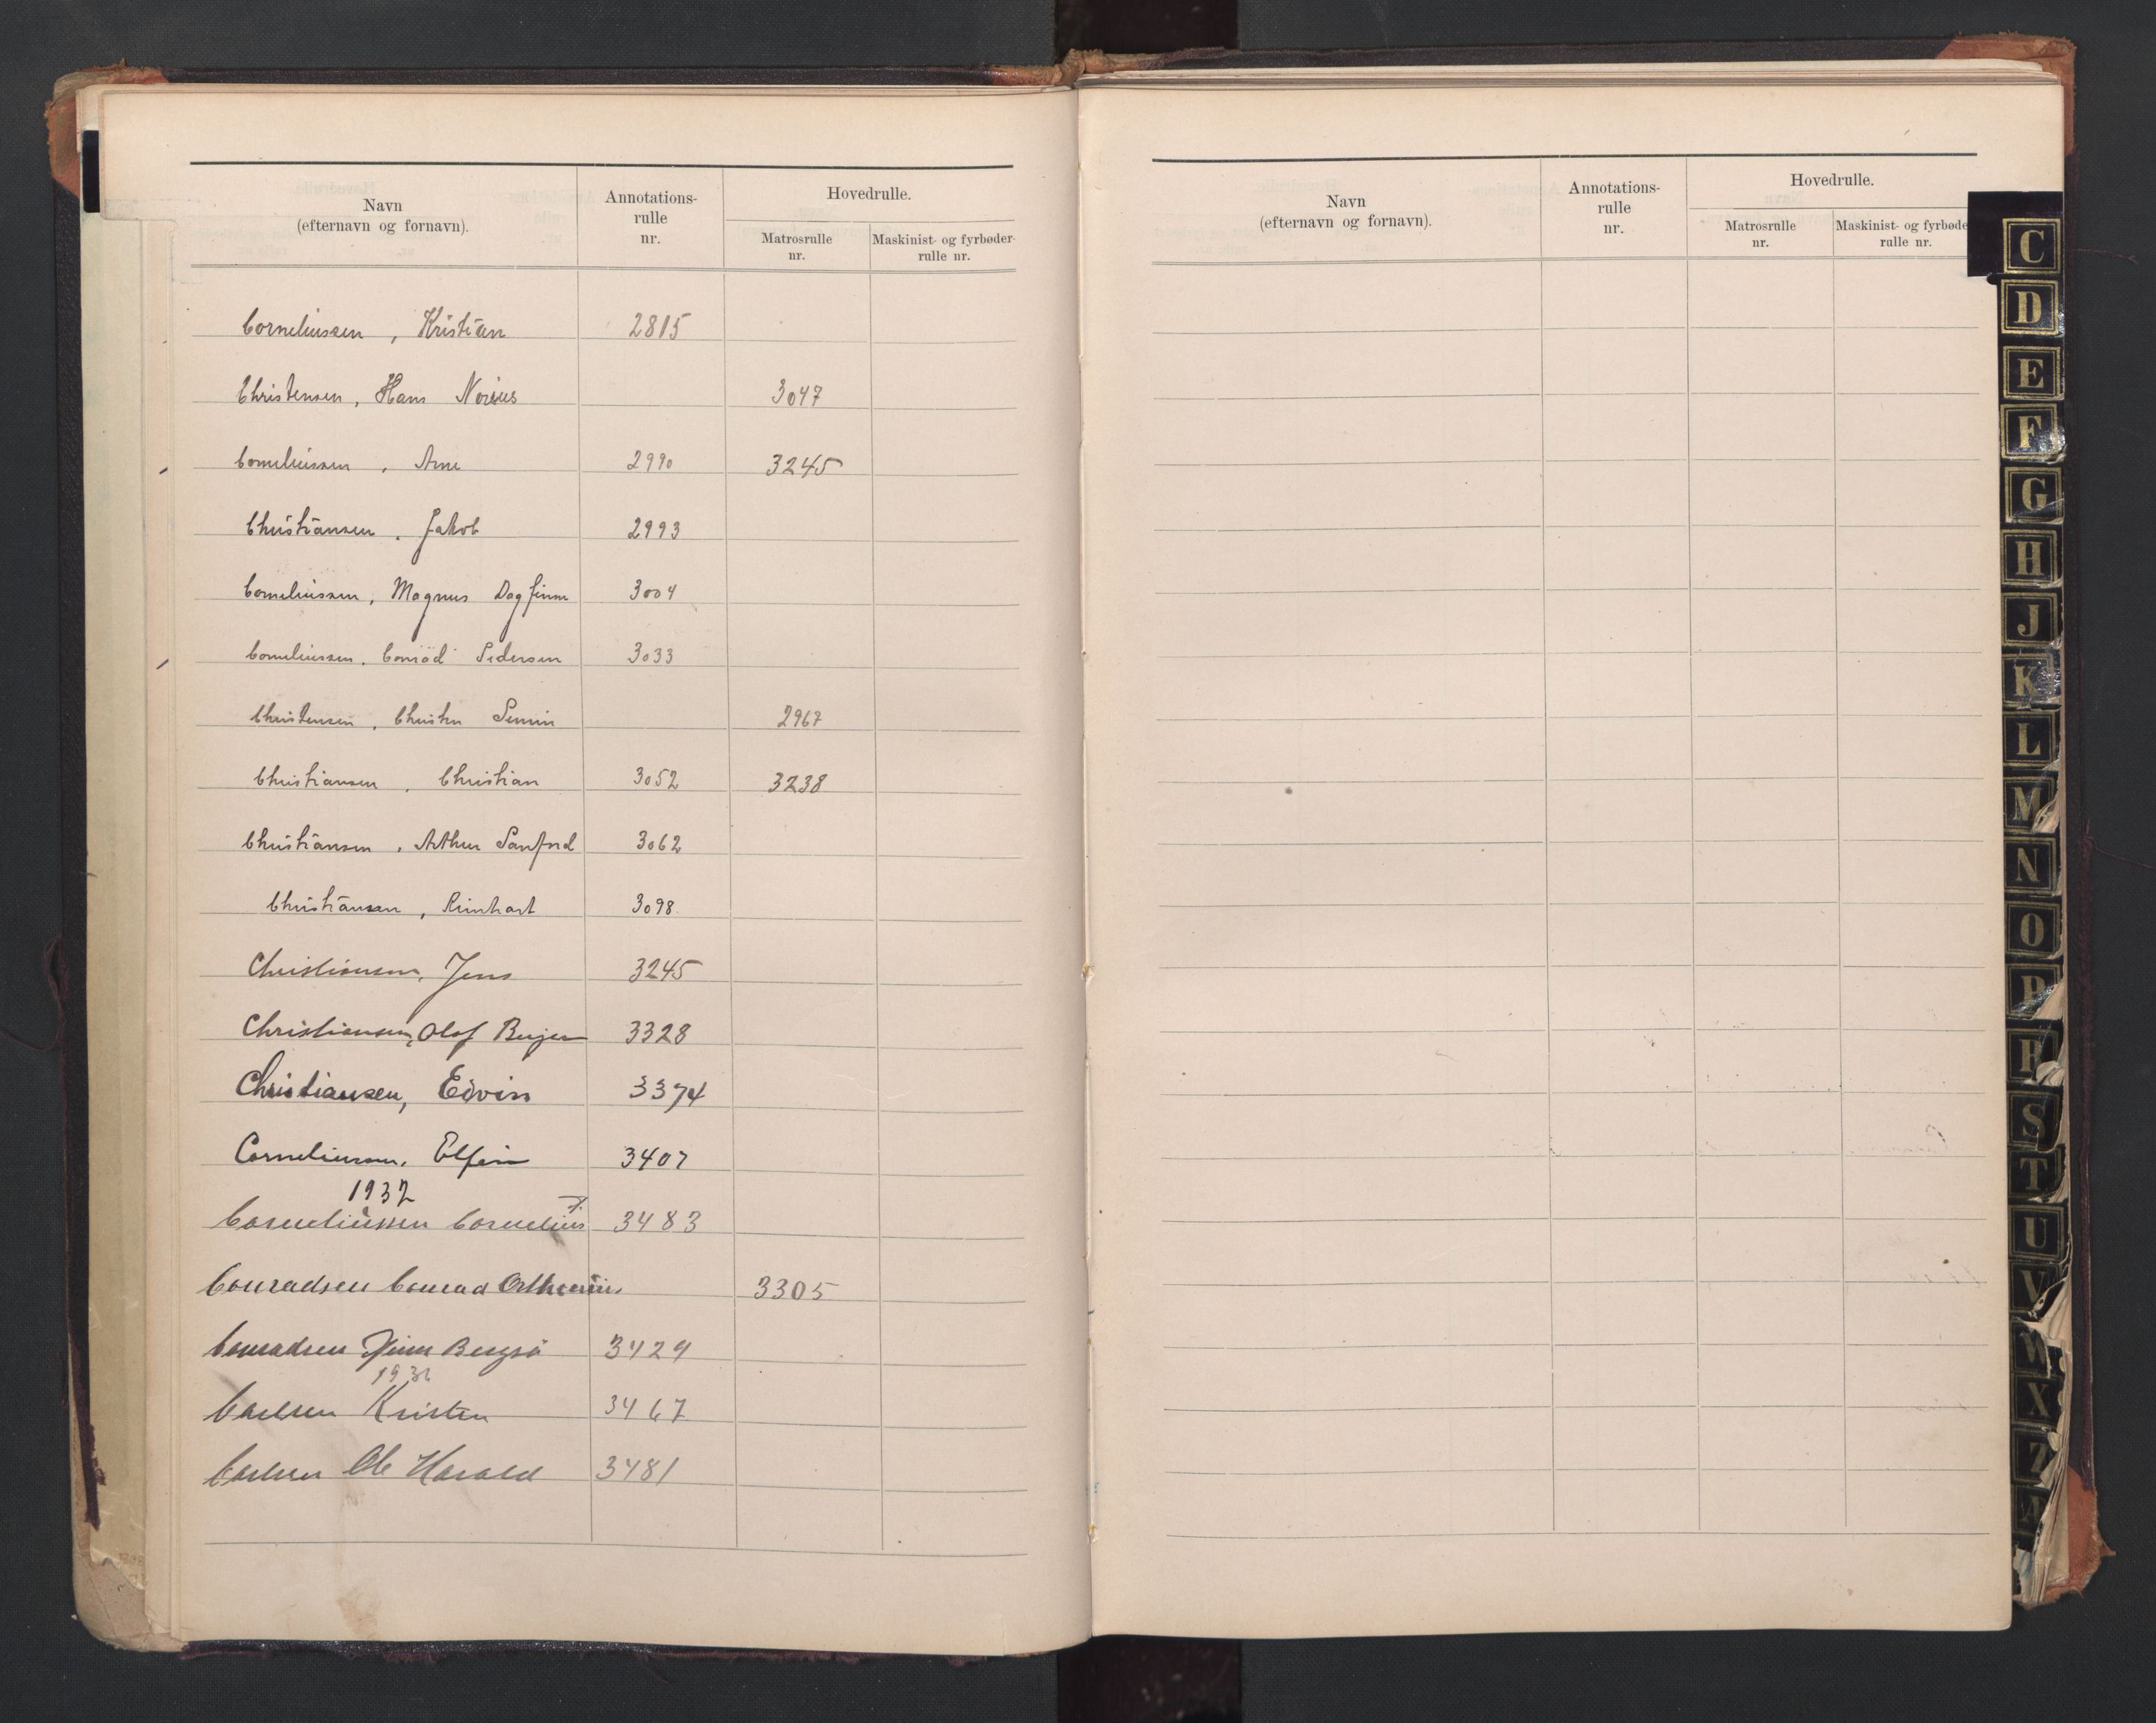 Navn (efternavn og fornavn). Annotations-rulle nr. Hovedrulle. Matrosrulle nr. Maskinist- og fyrbøder-rulle nr.
Corneliussen, Kristian 2815
Christensen, Hans 3047
Corneliussen, Arne 2990 3245
Christiansen, Jakob 2993
Corneliussen, Magnus Dagfinn 3004
Corneliussen, Conrad Pedersen 3033
Christensen, 2967
Christiansen, Christian 3052 3238
Christiansen, Arthur Sanford 3062
Christiansen, Reinhart 3098
Christiansen, Jens 3245
Christiansen, Olaf 3328
Christiansen, Edvin 3374
Corneliussen, 3407
1937
Corneliussen Cornelius 3483
Conradsen Conrad 3305
Conradsen Finn 3429
Carlsen Kristen 3467
Carlsen Ole Harald 3481
Navn (efternavn og fornavn). Annotations-rulle nr. Hovedrulle. Matrosrulle nr. Maskinist- og fyrbøde rulle nr.
C
D
E
F
G
H
J
K
L
M
N
O
P
R
S
T
U
V
W
X
Z